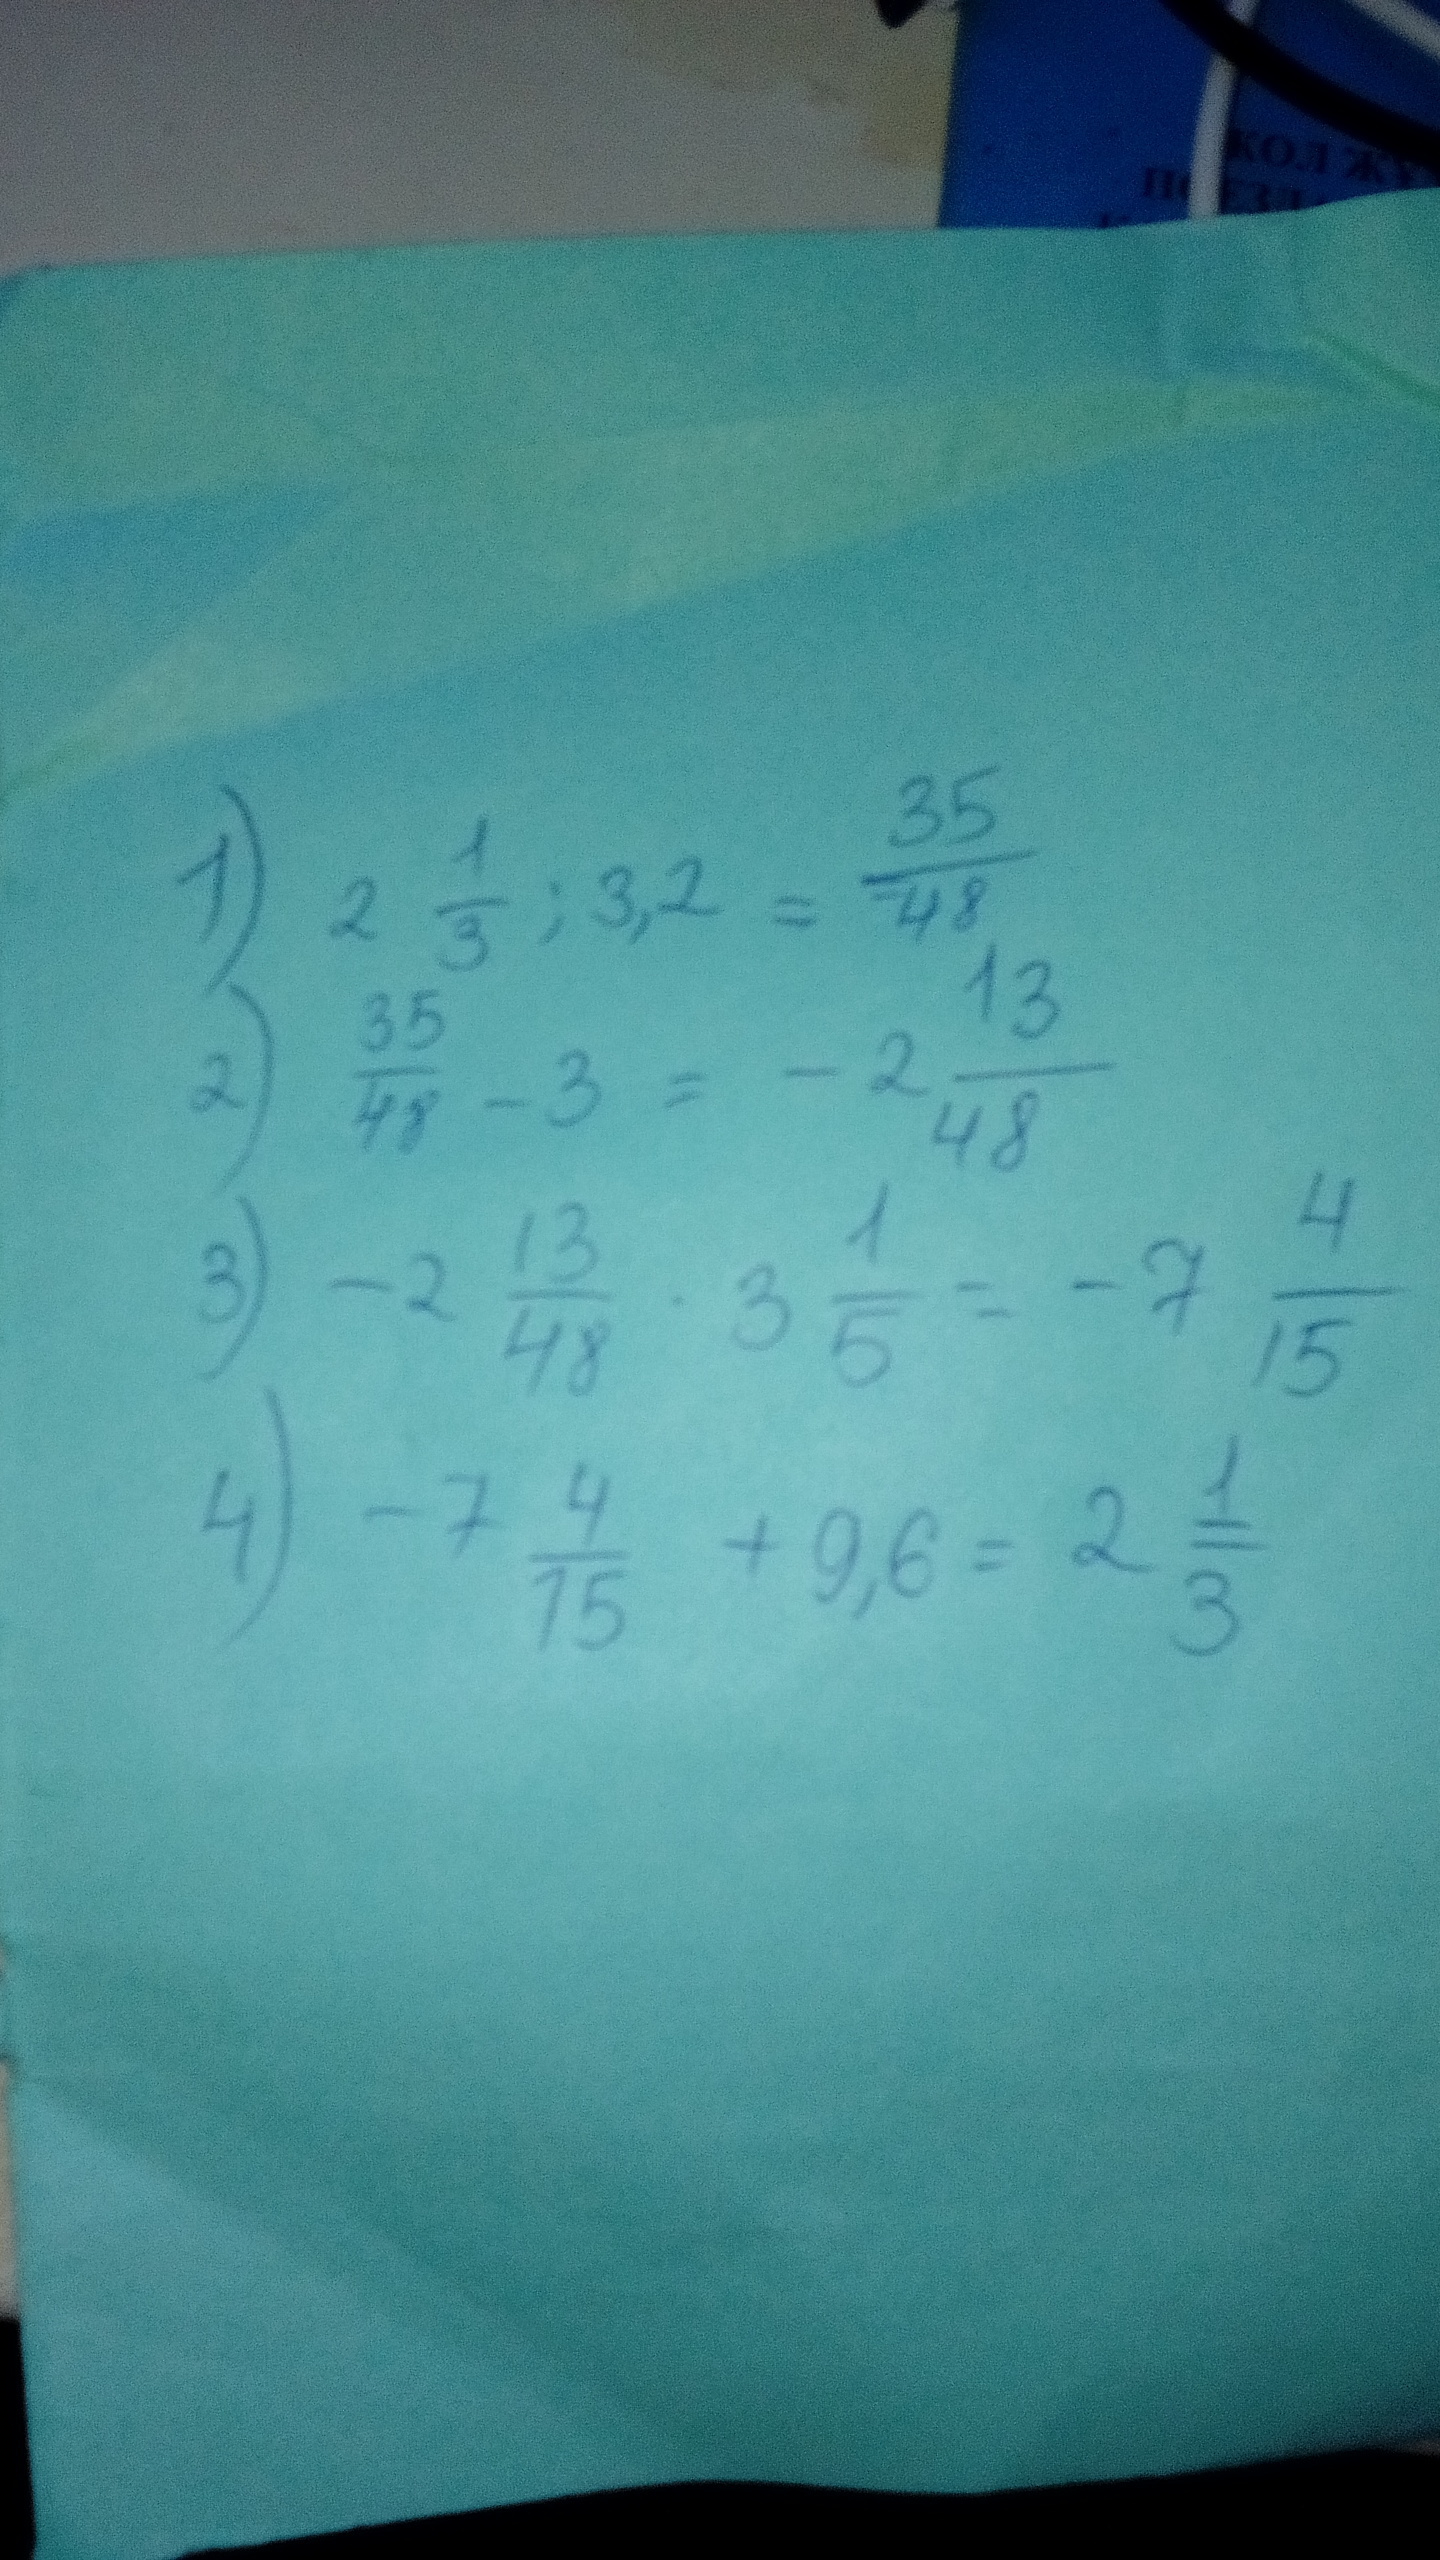 ЖОЛ ЖҮ
1) 2 1/3 : 3,2 = 35/48
2) 35/48 - 3 = - 2 13/48
3) - 2 13/48 · 3 1/5 = - 7 4/15
4) - 7 4/15 + 9,6 = 2 1/3